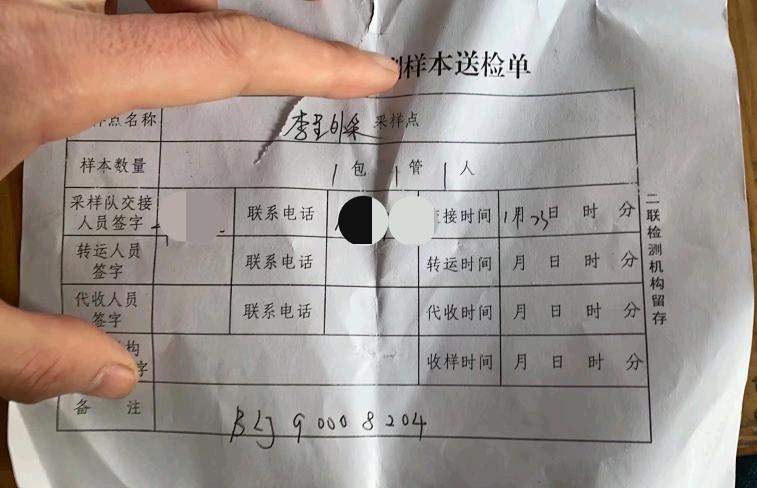 样本送检单
样点名称 李里外采 采样点
样本数量 1包 1管 1人
采样队交接人员签字 联系电话 接时间 1月23日 时 分
转运人员签字 联系电话 转运时间 月 日 时 分
代收人员签字 联系电话 代收时间 月 日 时 分
构 字 收样时间 月 日 时 分
备 注 BLJ 90008204
二联检测机构留存